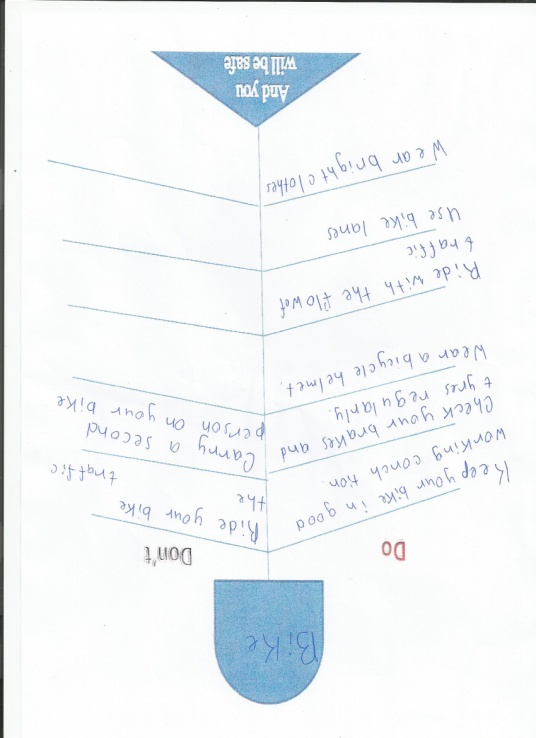 BiKe
Do
Keep your bike in good
working conch tion.
Check your brakes and
tyres regularly.
Wear a bicycle helmet.
Ride with the flowof
traffic
Use bike lanes
Wear bright clothes
Don't
Ride your bike
the traffic
Carry a second
person on your bike
And you
will be safe